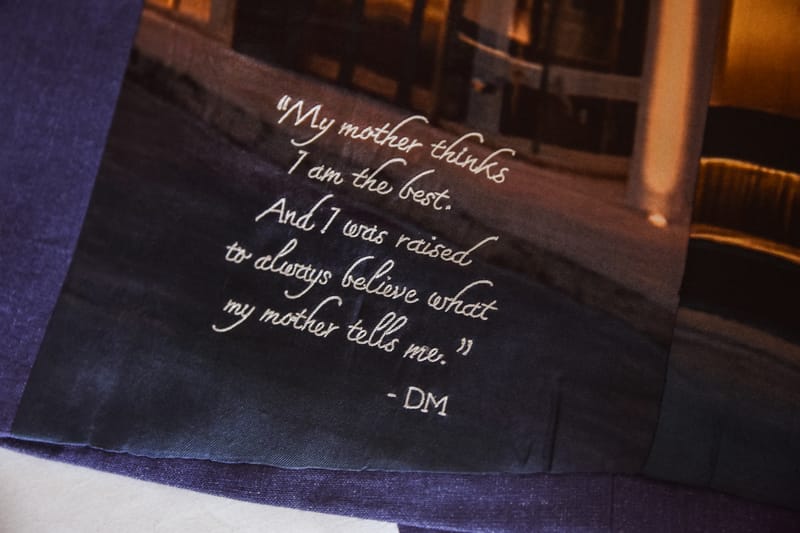 “My mother thinks
I am the best.
And I was raised
to always believe what
my mother tells me.”
- DM